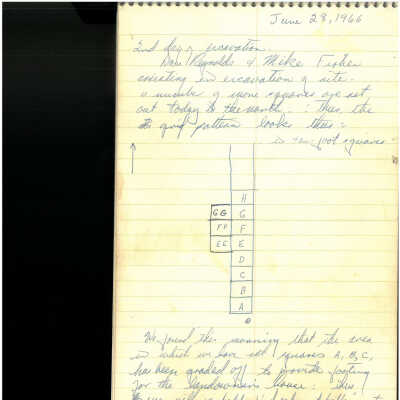 June 28, 1966
2nd day of excavation.
Dave Reynolds & Mike Fisher
assisting in excavation of site.
a number of more squares are set
out today to the north. Thus, the
grid pattern looks thus:
in ten foot squares
H
GG G
FF F
EE E
D
C
B
A
We found this morning that the area
in which we have set squares A, B, C,
has been graded off to provide footing
for the landowners house. this